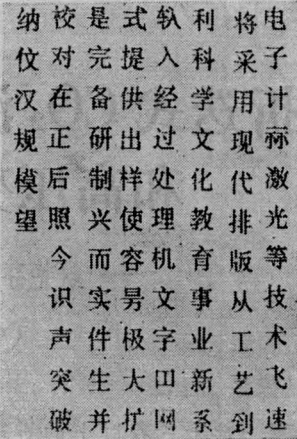 电子计祘激光等技术飞速
将采用现代排版从工艺到
利科学文化教育事业新系
入经过处理机文字田网
式提供出样使容极大扩
是完备研制兴而实件生并
校对在正后照今识声突破
纳汉规模望